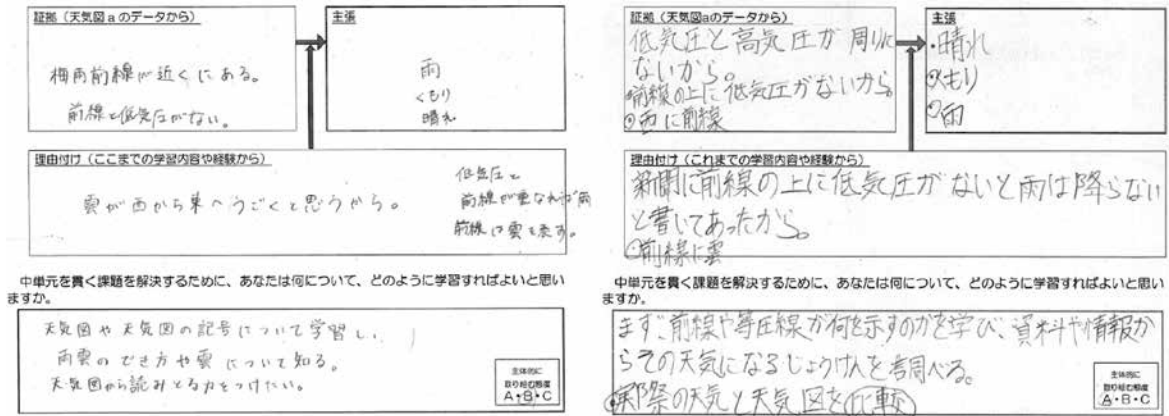 証拠（天気図ａのデータから）
梅雨前線が近くにある。
前線と低気圧がない。
主張
雨
くもり
晴れ
理由付け（ここまでの学習内容や経験から）
雲が西から東へうごくと思うから。
低気圧と
前線が重なれば雨
前線は雲を表す。
中単元を貫く課題を解決するために、あなたは何について、どのように学習すればよいと思い
ますか。
天気図や天気図の記号について学習し、
雨雲のでき方や雲について知る。
天気図から読みとる力をつけたい。
主体的に
取り組む態度
A・B・C
証拠（天気図aのデータから）
低気圧と高気圧が周りに
ないから。
前線の上に低気圧がないから。
西に前線
主張
・晴れ
くもり
雨
理由付け（これまでの学習内容や経験から）
新聞に前線の上に低気圧がないと雨は降らない
と書いてあったから。
前線に雲
中単元を貫く課題を解決するために、あなたは何について、どのように学習すればよいと思い
ますか。
まず、前線や等圧線が何を示すのかを学び、資料や情報か
らその天気になるじょうけんを調べる。
実際の天気と天気図を比較
主体的に
取り組む態度
A・B・C